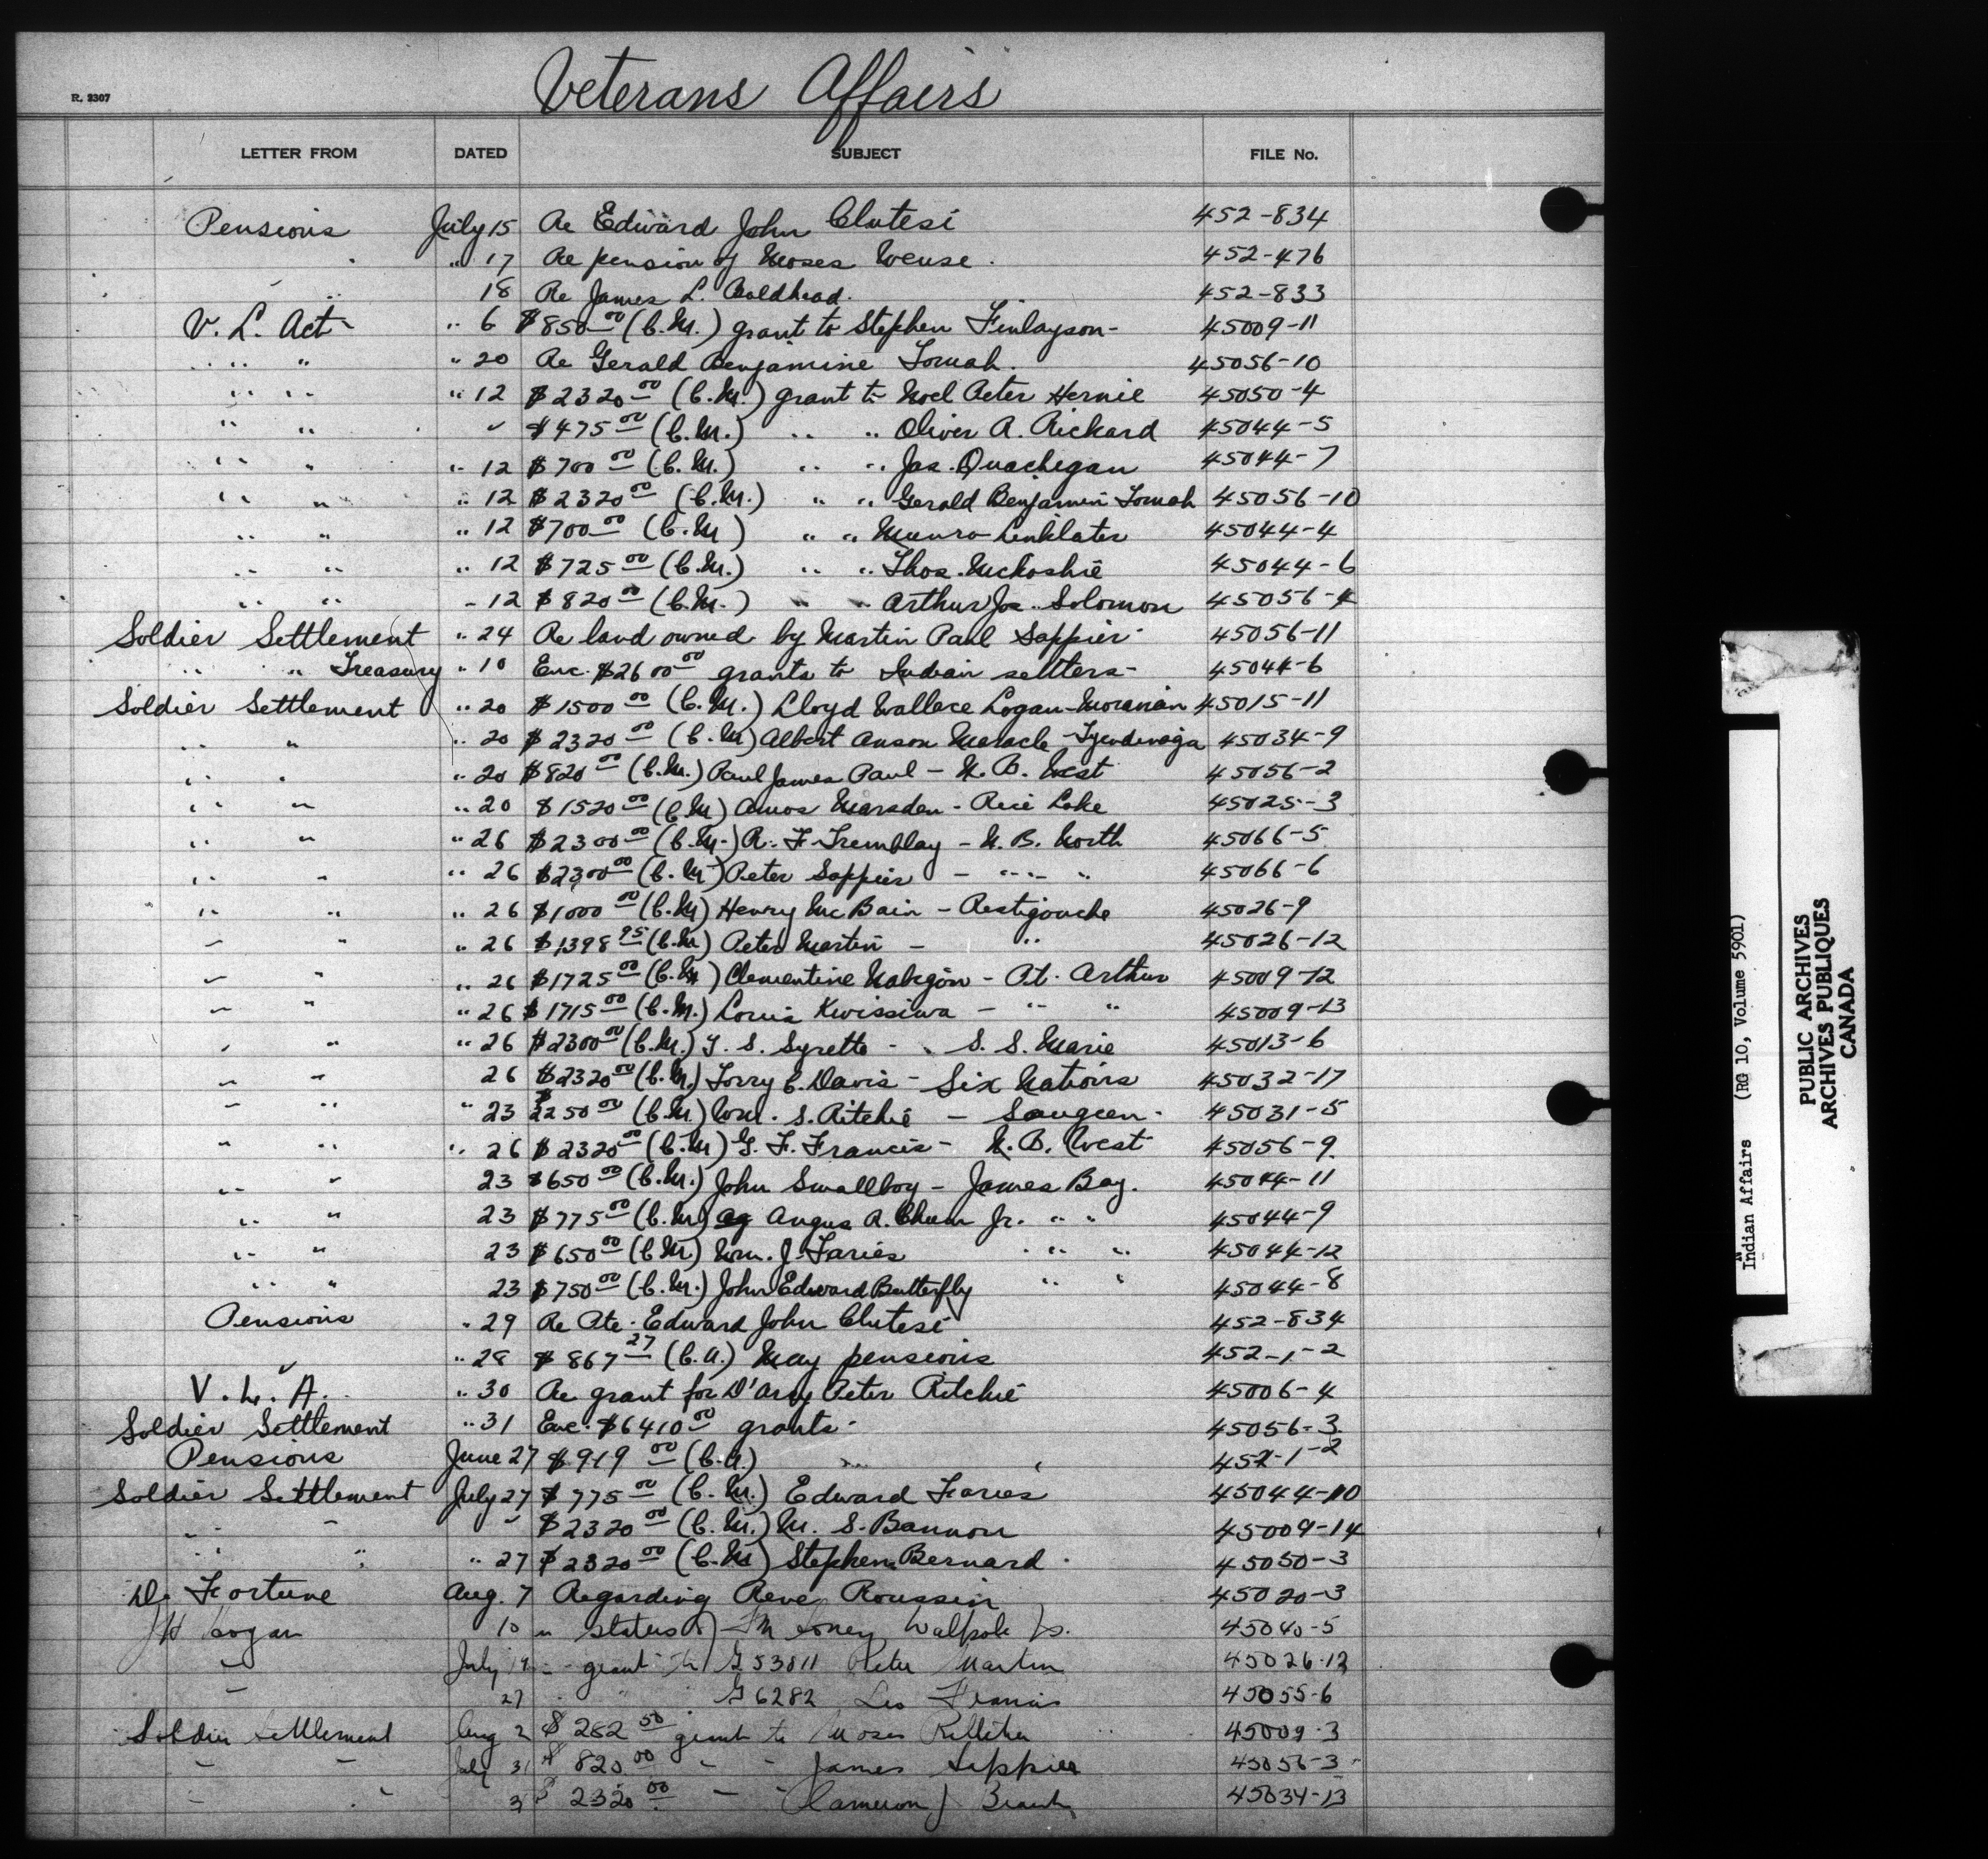 Veterans Affairs
R. 2307
LETTER FROM DATED SUBJECT FILE No.
Pensions July 15 Re Edward John Clutesi 452-834
" 17 Re pension of Moses Weuse. 452-476
18 Re James L. Baldhead. 452-833
V. L. Act " 6 $850.00 (C.M.) grant to Stephen Finlayson- 45009-11
" " " 20 Re Gerald Benjamine Tomah. 45056-10
" " " 12 $2320.00 (C.M.) grant to Noel Peter Hernie 45050-4
" " " $475.00 (C.M.) " " Oliver A. Rickard 45044-5
" " " 12 $700.00 (C.M.) " " Jas. Quachegan 45044-7
" " " 12 $2320.00 (C.M.) " " Gerald Benjamin Tomah 45056-10
" " " 12 $700.00 (C.M) " " Munro Linklater 45044-4
" " " 12 $725.00 (C.M.) " " Thos. Mckoshie 45044-6
" " " 12 $820.00 (C.M.) " " Arthur Jos. Solomon 45056-4
Soldier Settlement " 24 Re land owned by Martin Paul Sappier 45056-11
" " Treasury " 10 Enc. $2600.00 grants to Indian settlers- 45044-6
Soldier Settlement " 20 $1500.00 (C.M.) Lloyd Wallace Logan-Moravian 45015-11
" " " 20 $2320.00 (C.M) Albert Anson Maracle-Tyendinaga 45034-9
" " " 20 $820.00 (C.M.) Paul James Paul - N.B. West 45056-2
" " " 20 $1520.00 (C.M) Amos Marsden - Rice Lake 45025-3
" " " 26 $2300.00 (C.M.) R. F. Tremblay - N.B. North 45066-5
" " " 26 $2300.00 (C.M) Peter Sappier - " " " 45066-6
" " " 26 $1000.00 (C.M) Henry McBain - Restigouche 45026-9
" " " 26 $1398.95 (C.M) Peter Martin - " 45026-12
" " " 26 $1725.00 (C.M) Clementine Nabigon - Pt. Arthur 45009-12
" " " 26 $1715.00 (C.M.) Louis Kwissiwa - " " 45009-13
" " " 26 $2300.00 (C.M.) T. S. Syrette - S. S. Marie 45013-6
" " 26 $2320.00 (C.M.) Torry C. Davis - Six Nations 45032-17
" " " 23 $2250.00 (C.M) Wm. S. Ritchie - Saugeen- 45031-5
" " " 26 $2320.00 (C.M) G. F. Francis - N.B. West 45056-9
" " 23 $650.00 (C.M.) John Smallboy - James Bay. 45044-11
" " 23 $775.00 (C.M) Angus A. Chum Jr. " " 45044-9
" " 23 $650.00 (C.M) Wm. J. Faries " " 45044-12
" " 23 $750.00 (C.M.) John Edward Butterfly " " 45044-8
Pensions " 29 Re Pte. Edward John Clutesi 452-834
" 28 $867.27 (C.A.) May pensions 452-1-2
V. L. A. " 30 Re grant for D'Arcy Peter Ritchie 45006-4
Soldier Settlement " 31 Enc. $6410.00 grants- 45056-3
Pensions June 27 $919.00 (C.A.) " 452-1-2
Soldier Settlement July 27 $775.00 (C.M.) Edward Faries 45044-10
" " " $2320.00 (C.M.) M. S. Bannon 45009-14
" " " 27 $2320.00 (C.M) Stephen Bernard. 45050-3
Fortune Aug. 7 Regarding Rene Roussin 45020-3
Hogan 10 " status of Walpole Is. 45040-5
" July 19 " grant to G53811 Peter Martin 45026-12
" 27 " " G6282 Leo Francis 45055-6
Soldier Settlement Aug 2 $262.50 grant to Moses 45009-3
" " July 31 $820.00 " " James Sappier 45056-3
" " 31 $2320.00 " " Cameron J Brant 45034-13
Indian Affairs (RG 10, Volume 5901)
PUBLIC ARCHIVES
ARCHIVES PUBLIQUES
CANADA